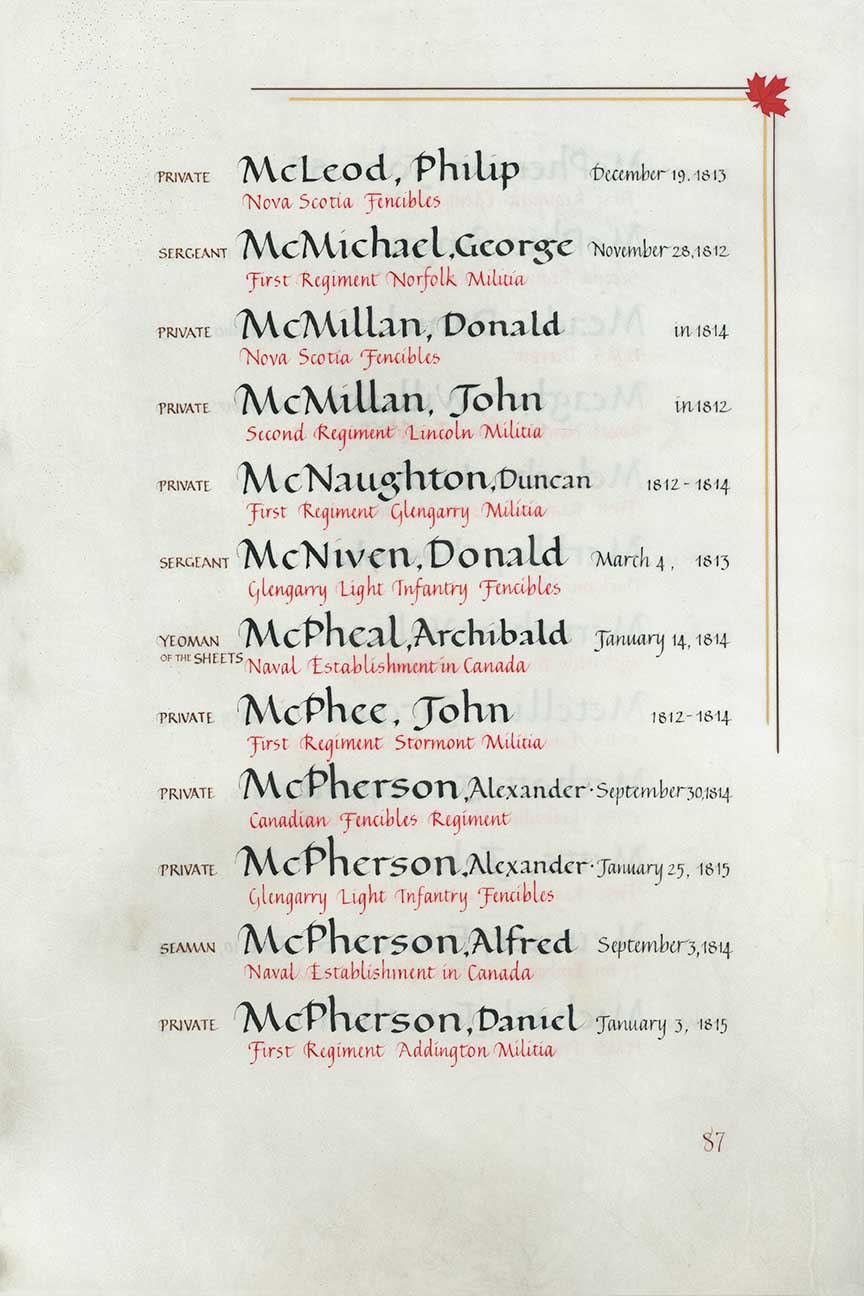 PRIVATE McLeod, Philip December 19, 1813
Nova Scotia Fencibles
SERGEANT McMichael, George November 28, 1812
First Regiment Norfolk Militia
PRIVATE McMillan, Donald in 1814
Nova Scotia Fencibles
PRIVATE McMillan, John in 1812
Second Regiment Lincoln Militia
PRIVATE McNaughton, Duncan 1812 - 1814
First Regiment Glengarry Militia
SERGEANT McNiven, Donald March 4, 1813
Glengarry Light Infantry Fencibles
YEOMAN McPheal, Archibald January 14, 1814
OF THE SHEETS Naval Establishment in Canada
PRIVATE McPhee, John 1812-1814
First Regiment Stormont Militia
PRIVATE McPherson, Alexander · September 30, 1814
Canadian Fencibles Regiment
PRIVATE McPherson, Alexander · January 25, 1815
Glengarry Light Infantry Fencibles
SEAMAN McPherson, Alfred September 3, 1814
Naval Establishment in Canada
PRIVATE McPherson, Daniel January 3, 1815
First Regiment Addington Militia
87